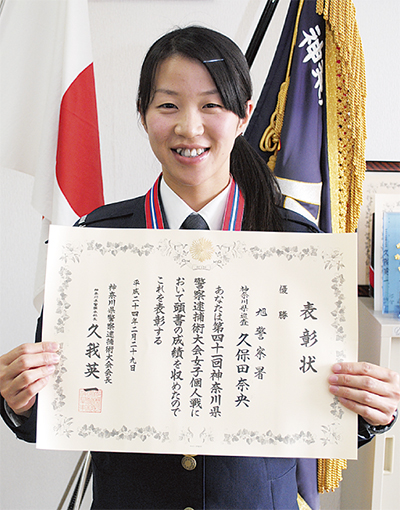 表彰状
優勝
旭警察署
神奈川県巡査 久保田奈央
あなたは第四十一回神奈川県
警察逮捕術大会女子個人戦に
おいて頭書の成績を収めたので
これを表彰する
平成二十四年二月二十九日
神奈川県警察逮捕術大会会長
久我英一
神奈